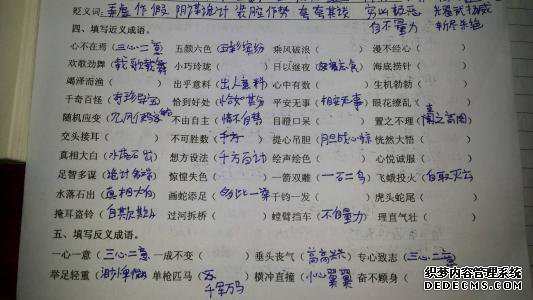 贬义词: 弄虚作假 阴谋诡计 装腔作势 夸夸其谈
自不量力
四、填写近义成语。
心不在焉(三心二意) 五颜六色(五彩缤纷) 乘风破浪( ) 漫不经心(
欢歌劲舞(载歌载舞) 小巧玲珑( ) 日以继夜( ) 海底捞针(
竭泽而渔( ) 出乎意料(出人意料) 心中有数( ) 生机勃勃(
千奇百怪( ) 恰到好处(恰如其分) 平安无事(相安无事) 眼花缭乱(
随机应变(见风使舵) 不由自主(情不自禁) 目瞪口呆( ) 置之不理(置之高阁)
交头接耳( ) 不可胜数( ) 提心吊胆(胆战心惊) 恍然大悟(
真相大白(水落石出) 想方设法(千方百计) 绘声绘色( ) 心悦诚服(
足智多谋(诡计多端) 惊惶失色( ) 一箭双雕(一石二鸟) 飞蛾投火(自取灭亡
水落石出(真相大白) 画蛇添足(多此一举) 千钧一发( ) 虎头蛇尾(
掩耳盗铃(自欺欺人) 过河拆桥( ) 螳臂挡车(不自量力) 理直气壮(
五、填写反义成语。
一心一意(三心二意) 一成不变( ) 垂头丧气( ) 专心致志(三心二意)
举足轻重( ) 单枪匹马(千军万马) 横冲直撞(小心翼翼) 奋不顾身(
默认相册